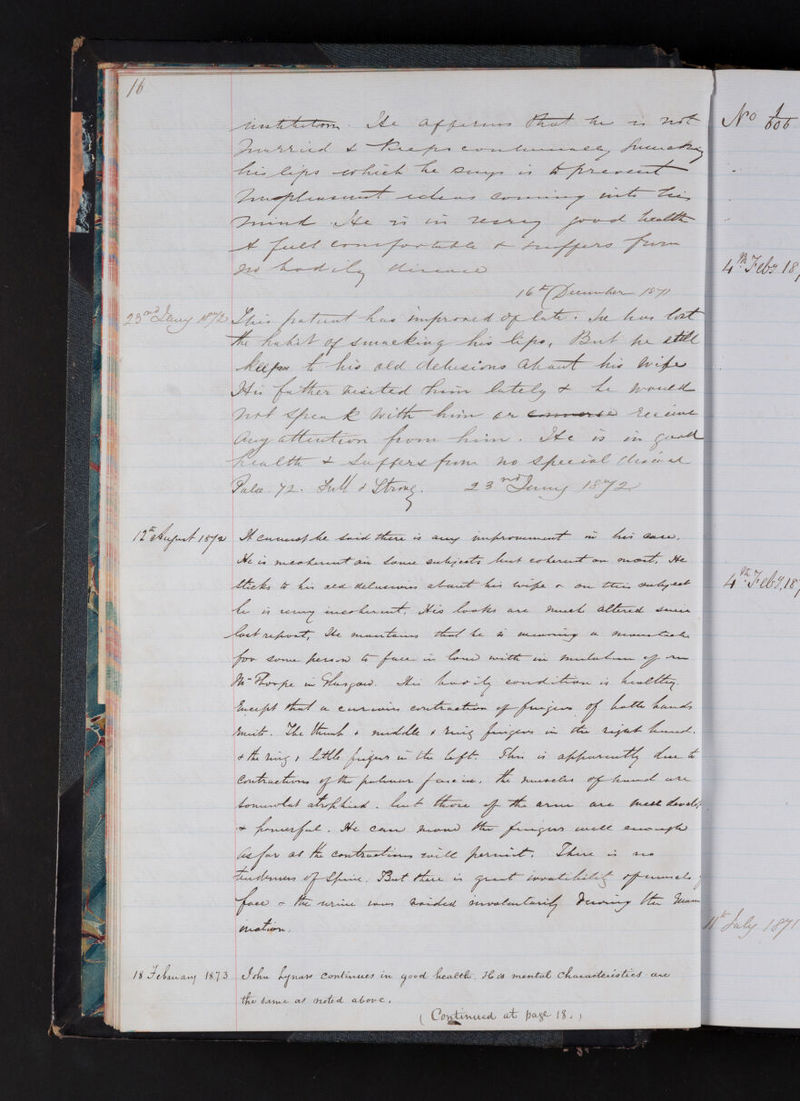 16
institution. He affirms that he is not
married & keeps continually smacking
his lips which he says is to prevent
unpleasant ideas coming into his
mind. He is in very good health
& full comfortable & suffers from
no bodily disease
16th December 1871
23rd Jany 1872 This patient has improved of late. He has lost
the habit of smacking his lips, But he still
keeps to his old delusions about his wife
His father visited him lately & he would
not speak with him or converse receive
any attention from him. He is in good
health & suffers from no special disease
Pulse 72. Full & Strong. 23rd Jany 1872
12th August 1872 It cannot be said there is any improvement in his case.
He is incoherent on some subjects but coherent on most. He
sticks to his old delusions about his wife & on this subject
he is very incoherent. His looks are much altered since
last report, He maintains that he is wearing a moustache
for some person to face in love with in imitation of
Mr Thorpe in Glasgow. His bodily condition is healthy
Except that a curious contraction of fingers of both hands
exist. The thumb & middle & ring fingers in the right hand.
& the ring & little fingers in the left. This is apparently due to
Contractions of the palmar fascia. the muscles of hand are
somewhat atrophied. but those of the arm are well develop
& powerful. He can move the fingers well enough
as far as the contractions will permit. There is no
tenderness of Spine. But there is great of muscles of
face & the urine was voided involuntarily during the Exam
ination.
18 February 1873 John Lynass continues in good health. His mental characteristics are
the same as noted above.
(Continued at page 18.)
No 606
4th Feby 18
4th Feby. 187
11th July 1871